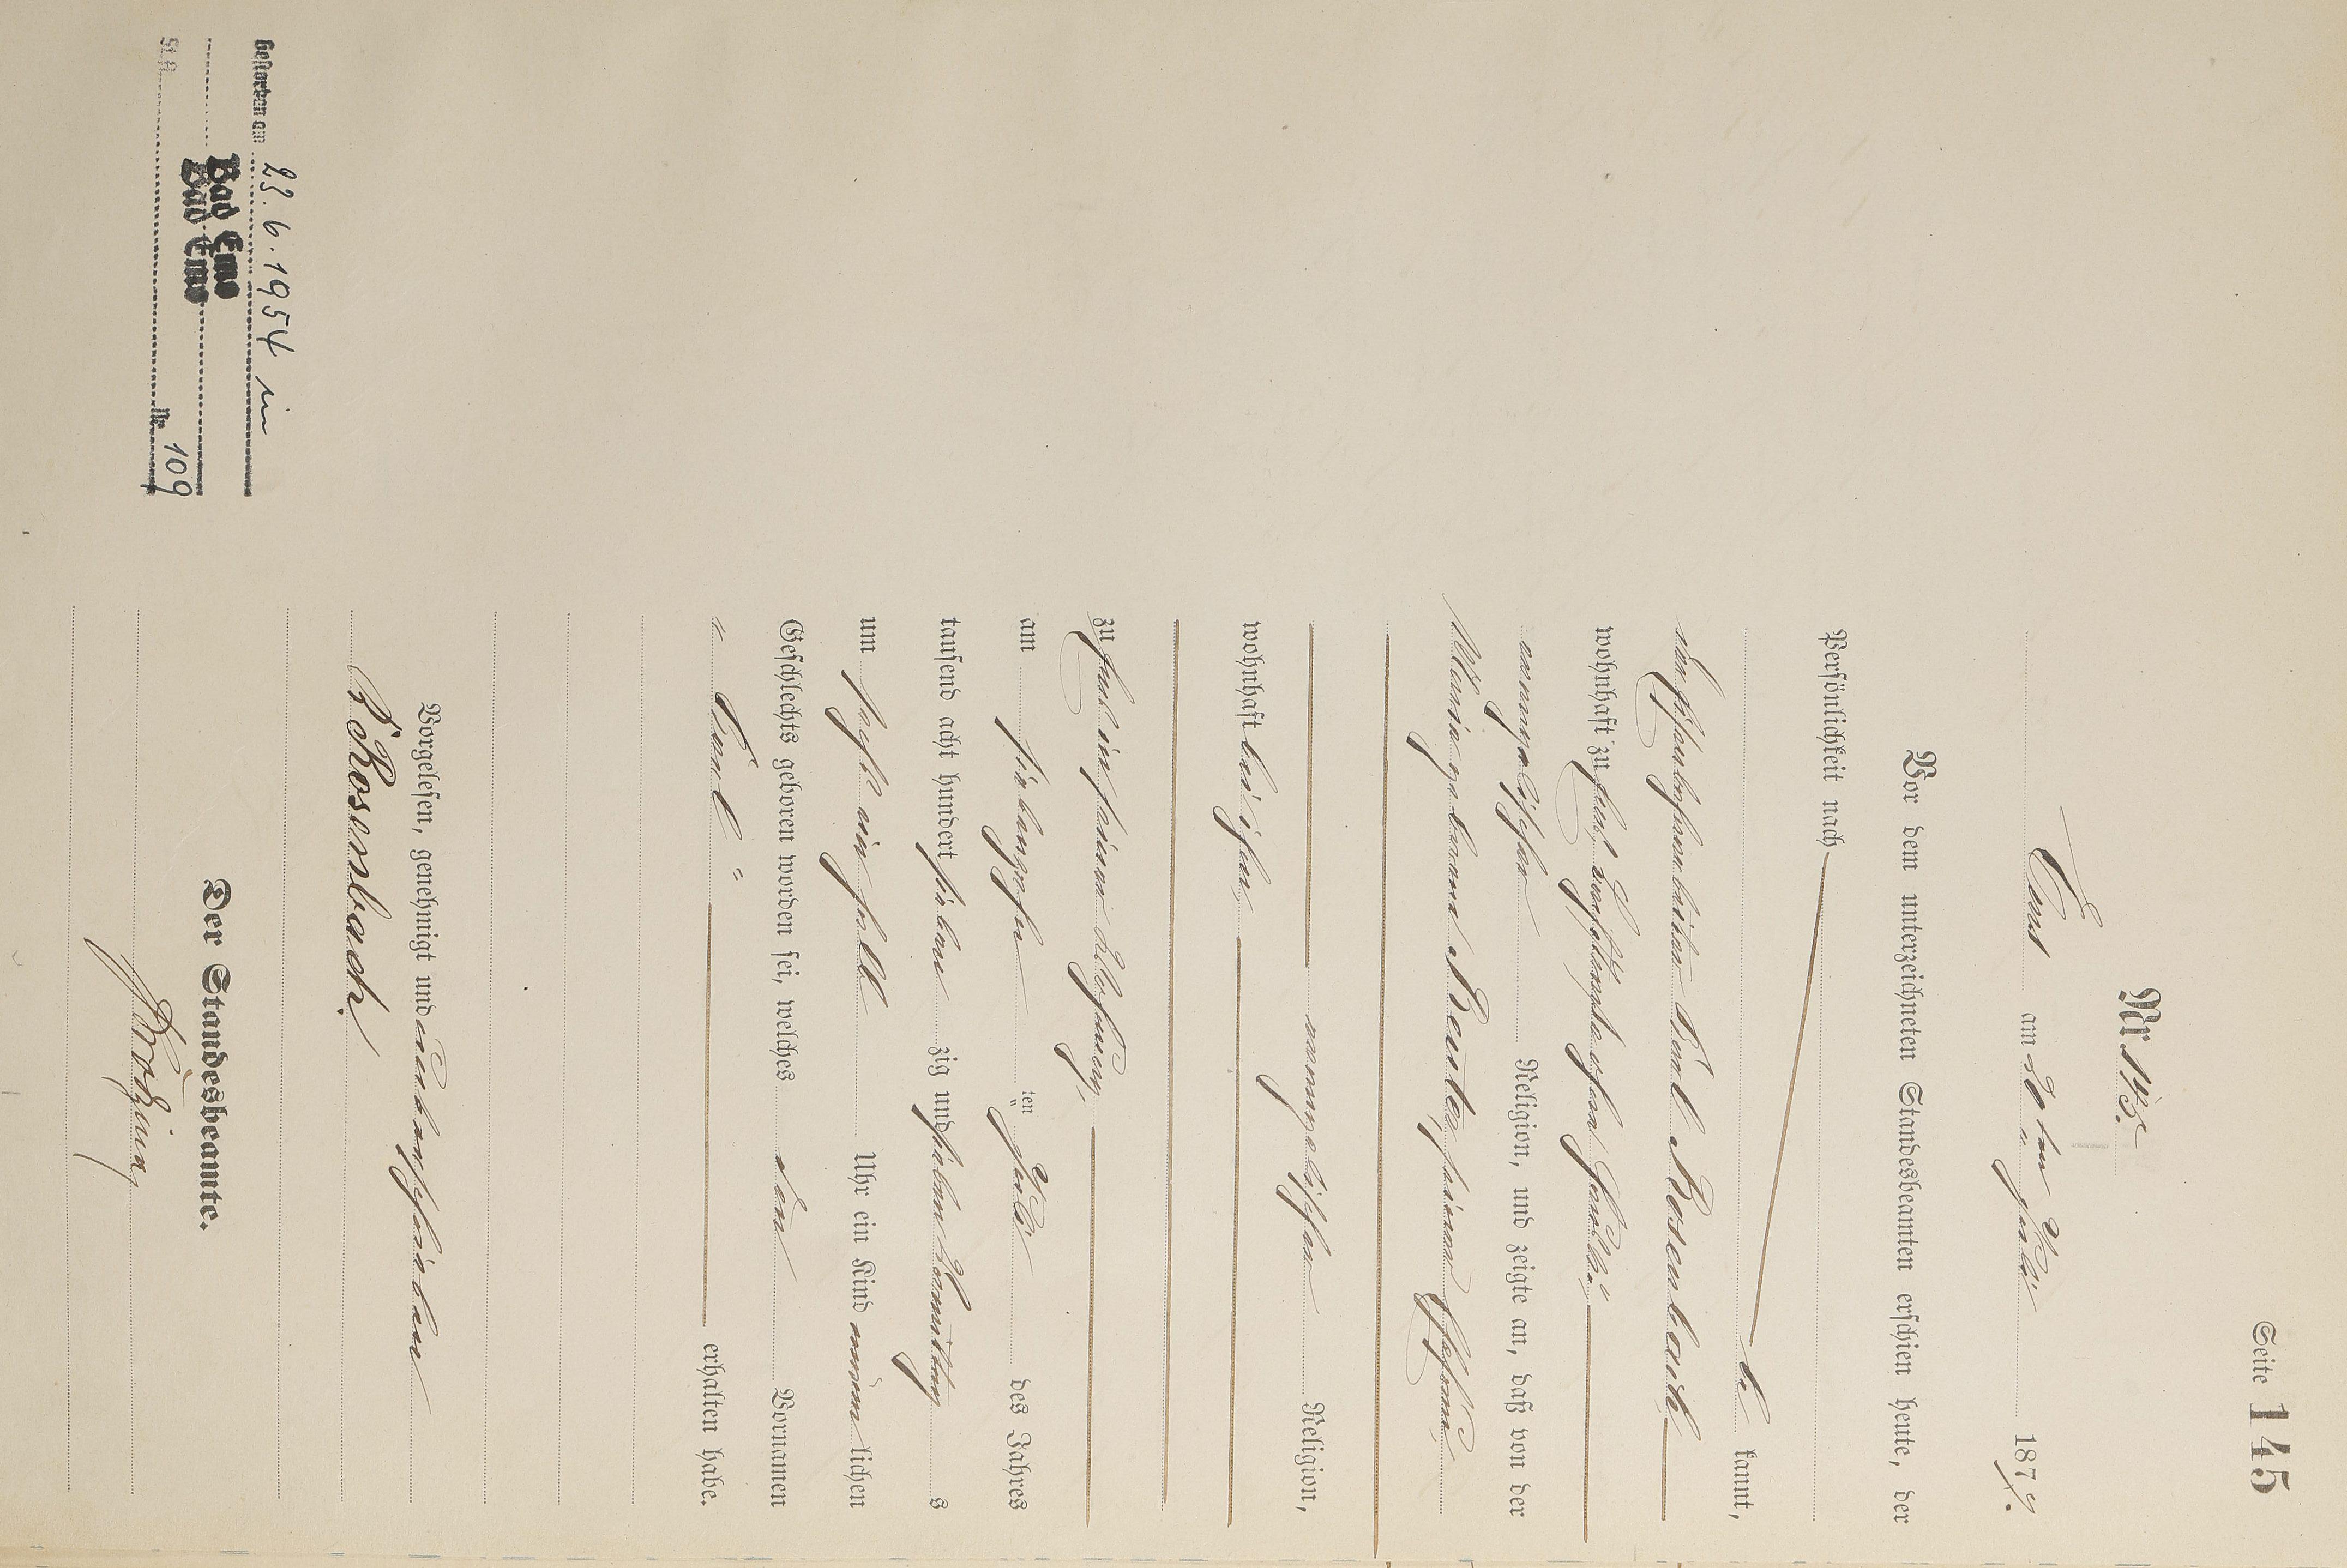 Seite 145
Nr 145.
Ems am 20 ten Juli 1877.
Vor dem unterzeichneten Standesbeamten erschien heute, der
Persönlichkeit nach
be kannt,
der Carl Rosenbach
wohnhaft zu Ems,
evangelischer Religion, und zeigte an, daß von der
Maria geborene Reuter, seiner Ehefrau,
evangelischer Religion,
wohnhaft bei ihm,
zu Ems in seiner Wohnung,
am siebenzehn ten Juli des Jahres
tausend acht hundert sieben zig und sieben Vormittag s
um sechs ein halb Uhr ein Kind männ lichen
Geschlechts geboren worden sei, welches den Vornamen
"Carl" erhalten habe.
Vorgelesen, genehmigt und unterschrieben
C. Rosenbach.
Der Standesbeamte.
Gestorben am 23.6.1954 in
Bad Ems
Bad Ems
StA. Nr. 109